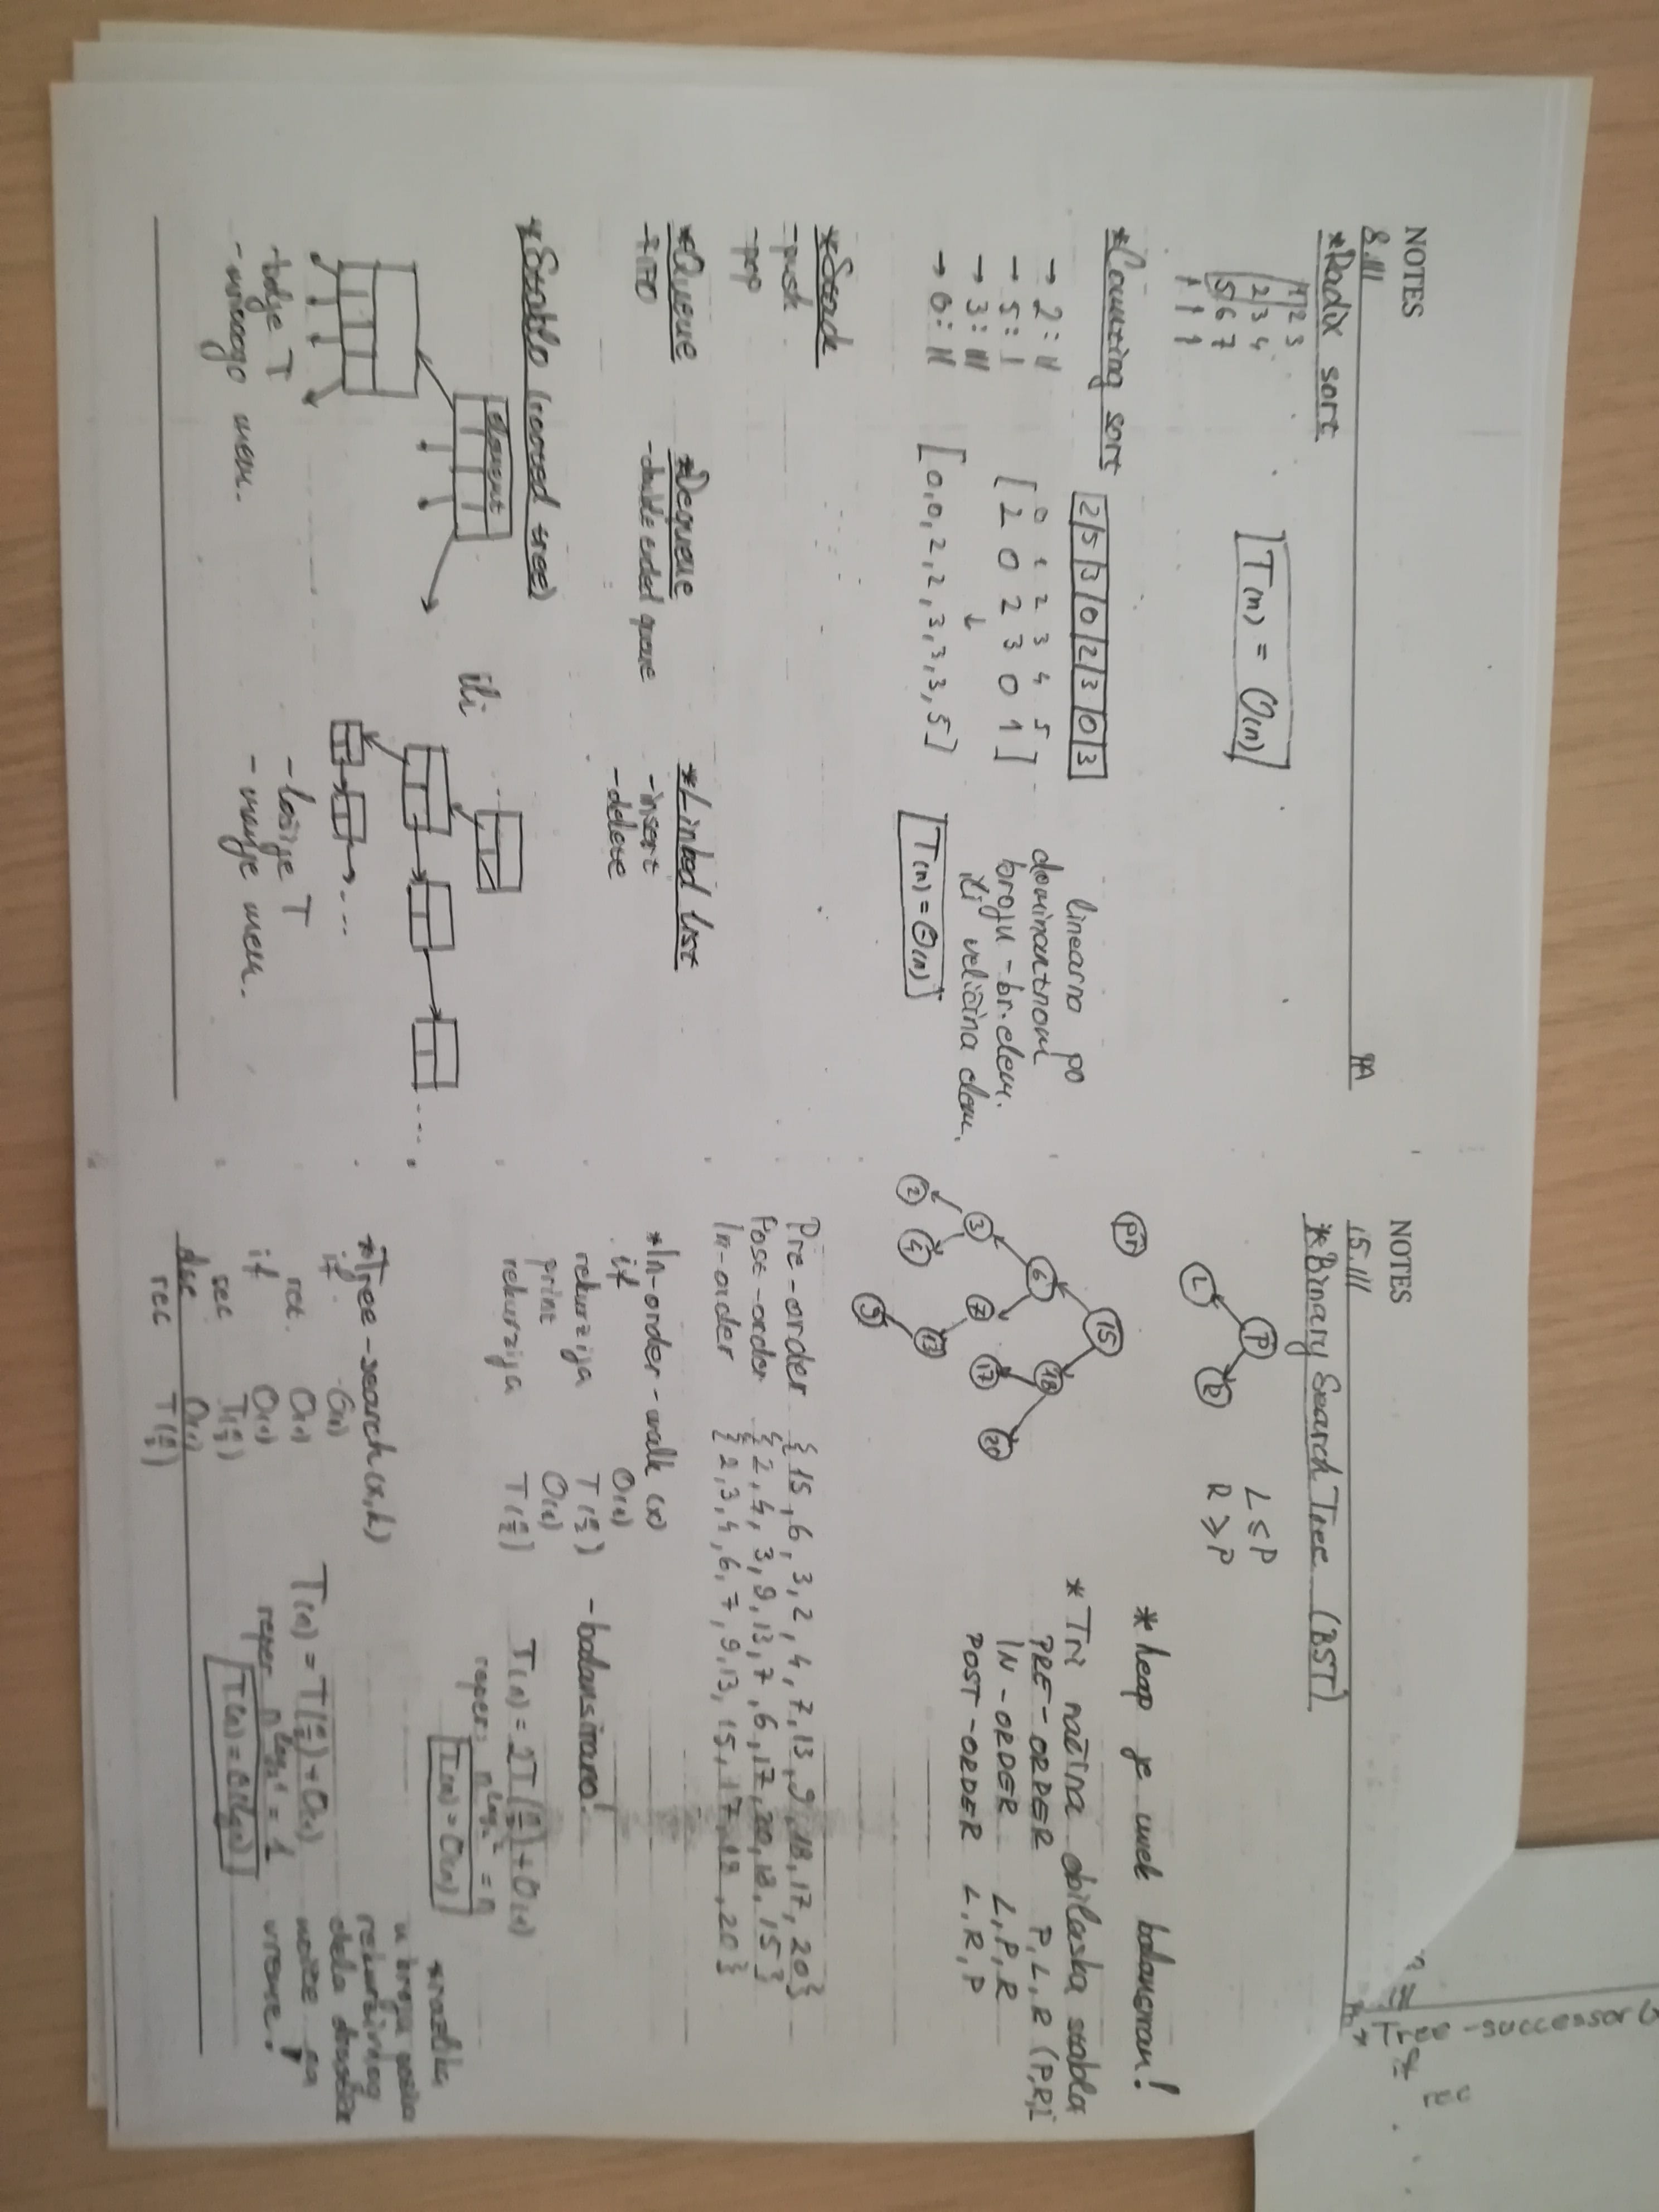 NOTES
8.III PA
*Radix sort
1 2 3
2 3 4
5 6 7
T(n) = O(n)
*Counting sort
2 5 3 0 2 3 0 3
→ 2: II
→ 5: I
→ 3: III
→ 0: II
0 1 2 3 4 5
[2 0 2 3 0 1]
↓
[0,0,2,2,3,3,3,5]
linearno po
dominantnom
broju - br. elem.
ili veličina elem.
T(n) = Θ(n)
*Stack
-push
-pop
*Queue
-FIFO
*Dequeue
-double ended queue
*Linked list
-insert
-delete
*Stablo (rooted tree)
element
ili
-bolje T
-mnooogo mem.
-lošije T
-manje mem.
NOTES
15.III
*Binary Search Tree (BST)
P
L R
L ≤ P
R ≥ P
pr
15
6 18
3 7 17 20
2 4 13
9
*heap je uvek balansiran!
* Tri načina obilaska stabla
PRE-ORDER P, L, R (P,R,L
IN-ORDER L, P, R
POST-ORDER L, R, P
Pre-order {15, 6, 3, 2, 4, 7, 13, 9, 18, 17, 20}
Post-order {2, 4, 3, 9, 13, 7, 6, 17, 20, 18, 15}
In-order {2, 3, 4, 6, 7, 9, 13, 15, 17, 18, 20}
*In-order-walk (x)
if O(1)
rekurzija T(n/2) -balansirano!
print O(1)
rekurzija T(n/2)
T(n) = 2T(n/2) + O(1)
reper: n^log₂2 = n
T(n) = O(n)
*Tree-search (x,k)
if O(1)
ret. O(1)
if O(1)
rec T(n/2)
else O(1)
rec T(n/2)
T(n) = T(n/2) + O(1)
reper n^log₂1 = 1
T(n) = O(lgn)
*razlika
u broju
rekurzivnog
dela
utiče na
vreme!
Tree-successor(x
if
rec